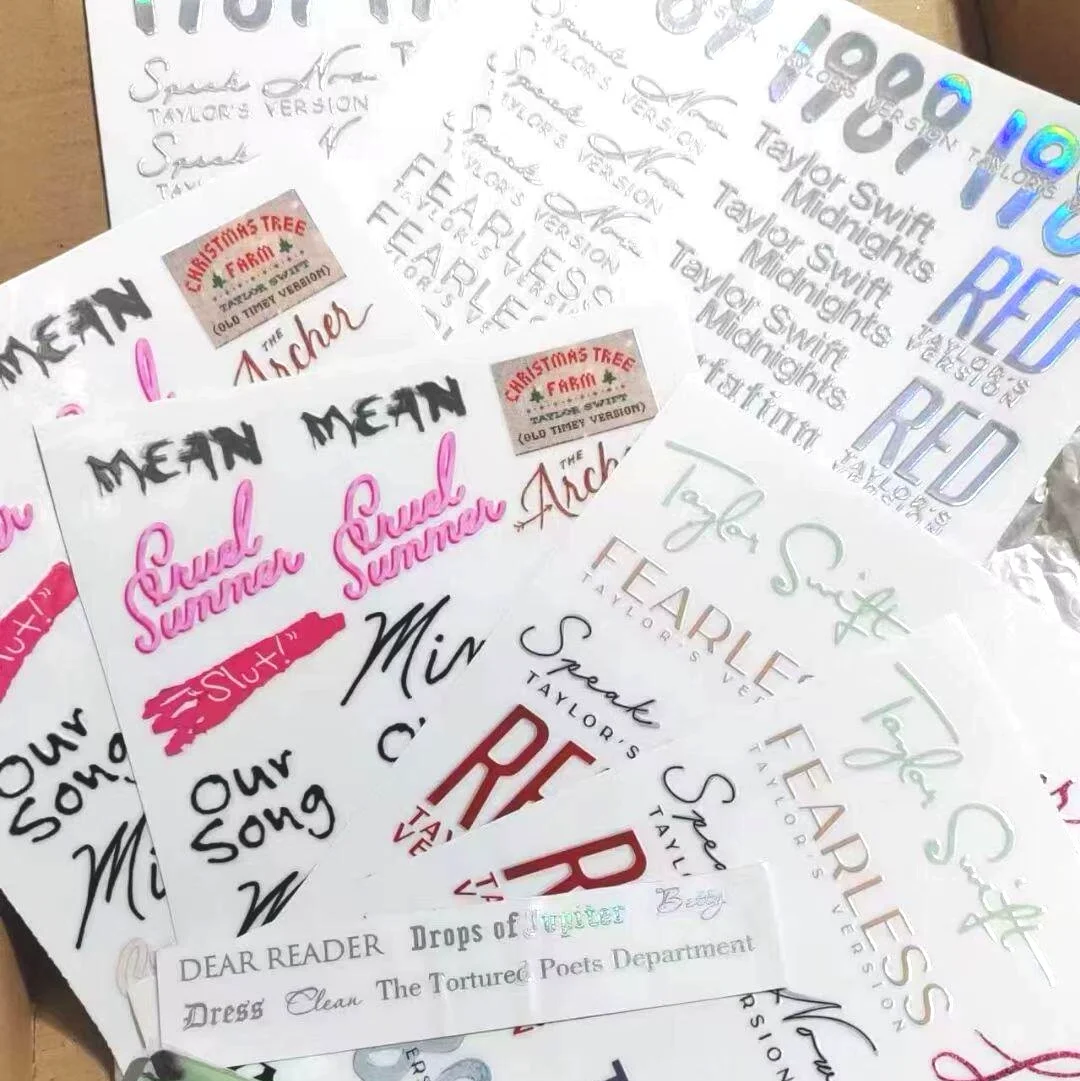 Speak Now
TAYLOR'S VERSION
Speak
Speak Now
TAYLOR'S VERSION
Speak Now
TAYLOR'S VERSION
Speak Now
TAYLOR'S VERSION
FEARLESS
TAYLOR'S VERSION
1989
TAYLOR'S VERSION
TAYLOR'S
Taylor Swift
Midnights
Taylor Swift
Midnights
Taylor Swift
Midnights
RED
TAYLOR'S
VERSION
RED
TAYLOR'S
VERSION
MEAN
CHRISTMAS TREE
FARM
TAYLOR SWIFT
(OLD TIMEY VERSION)
THE
Archer
MEAN MEAN
CHRISTMAS TREE
FARM
TAYLOR SWIFT
(OLD TIMEY VERSION)
THE
Cruel
Summer
Cruel
Summer
"Slut!"
Our
Song
Our
Song
Taylor Swift
Speak
TAYLOR'S
Taylor Swift
FEARLESS
TAYLOR'S VERSION
DEAR READER Drops of Jupiter Betty
Dress Clean The Tortured Poets Department
Now